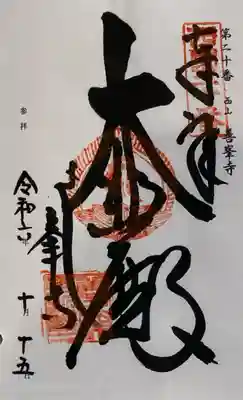 奉拝
第二十番 西山 善峯寺
大悲殿
善峯寺
参拝
令和六年
十月
十五